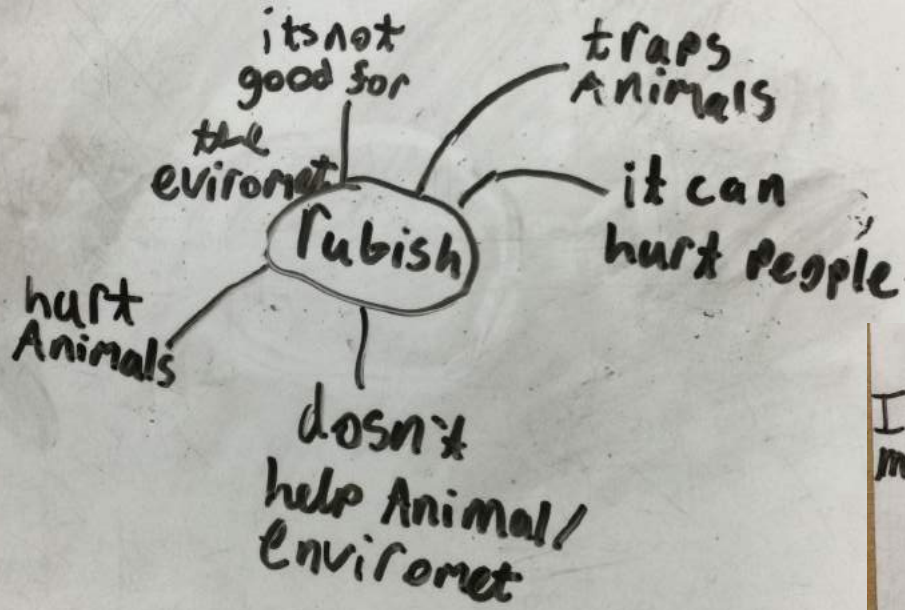 its not
good for
the
eviromet
traps
Animals
it can
hurt People
rubish
hurt
Animals
dosn't
help Animal/
enviromet
I
m